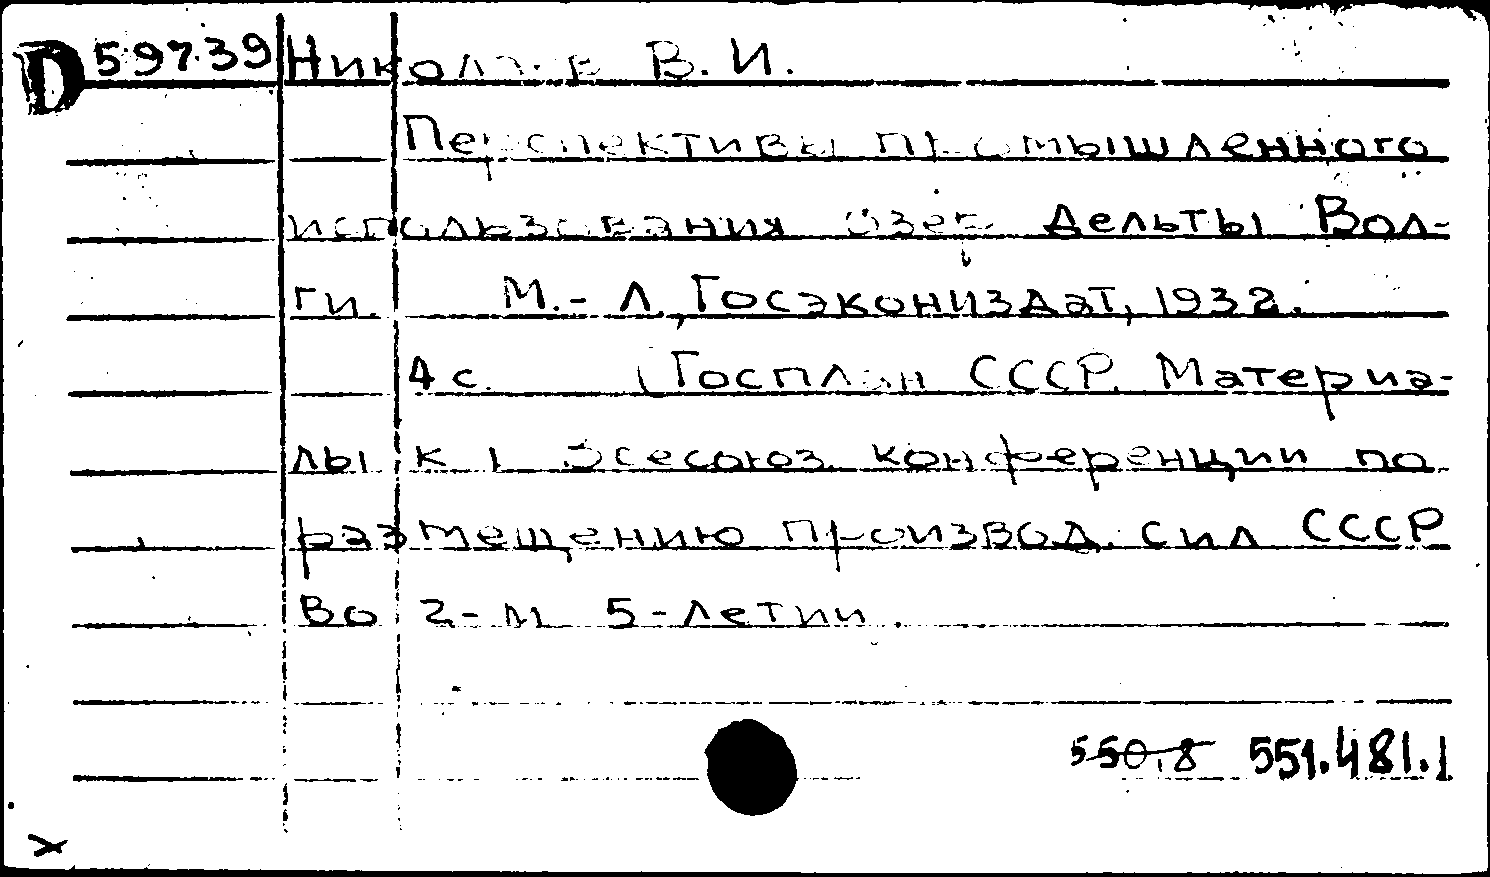 D 59739 Николаев В. И.
Перспективы промышленного
использования озер дельты Вол-
ги. М.-Л., Госэкониздат, 1932.
4 с. (Госплан СССР. Материа-
лы к I Всесоюз. конференции по
размещению производ. сил СССР
во 2-м 5-летии.
550.8 551.481.1